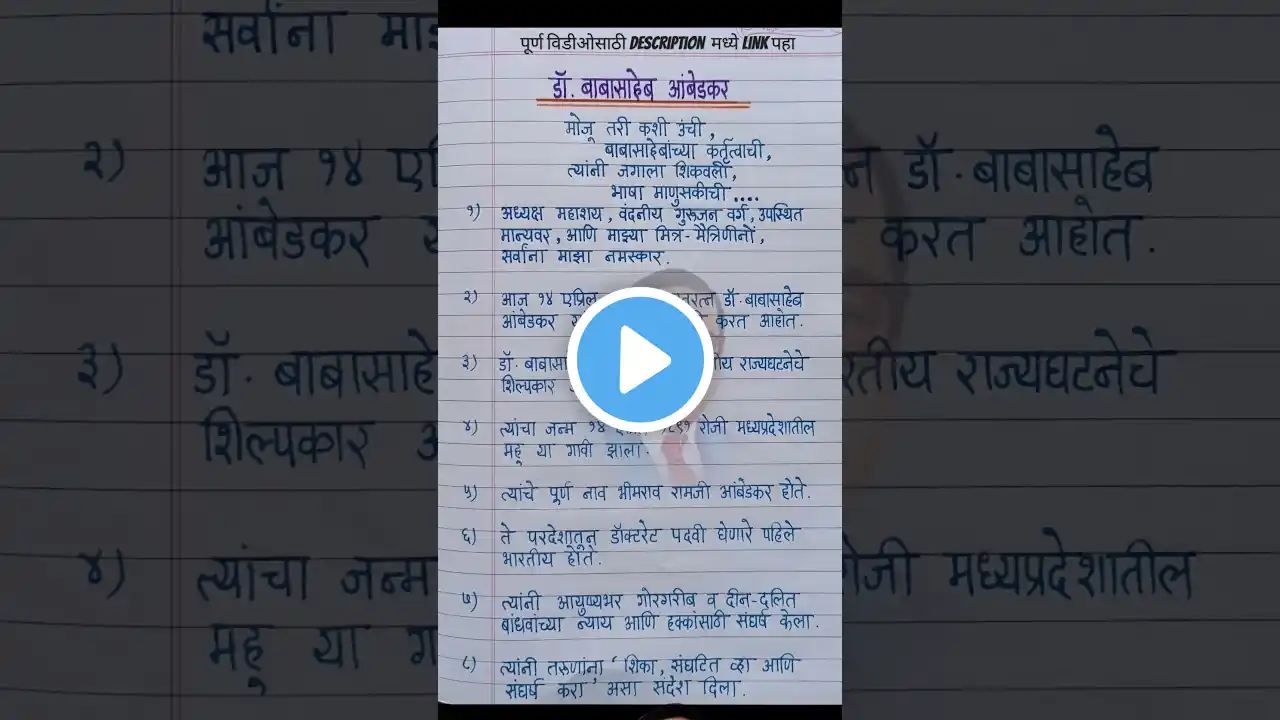 पूर्ण विडीओसाठी DESCRIPTION मध्ये LINK पहा
डॉ. बाबासाहेब आंबेडकर
मोजू तरी कशी उंची,
बाबासाहेबांच्या कर्तृत्वाची,
त्यांनी जगाला शिकवली,
भाषा माणुसकीची ....
१) अध्यक्ष महाशय, वंदनीय गुरुजन वर्ग, उपस्थित
मान्यवर, आणि माझ्या मित्र-मैत्रिणींनों,
सर्वांना माझा नमस्कार.
२) आज १४ एप्रिल डॉ. बाबासाहेब
आंबेडकर करत आहोत.
३) डॉ. राज्यघटनेचे
शिल्पकार
४) त्यांचा जन्म १४ रोजी मध्यप्रदेशातील
महू या गावी झाला.
५) त्यांचे पूर्ण नाव भीमराव रामजी आंबेडकर होते.
६) ते परदेशातून डॉक्टरेट पदवी घेणारे पहिले
भारतीय होते.
७) त्यांनी आयुष्यभर गोरगरीब व दीन-दलित
बांधवांच्या न्याय आणि हक्कांसाठी संघर्ष केला.
८) त्यांनी तरुणांना 'शिका, संघटित व्हा आणि
संघर्ष करा' असा संदेश दिला.